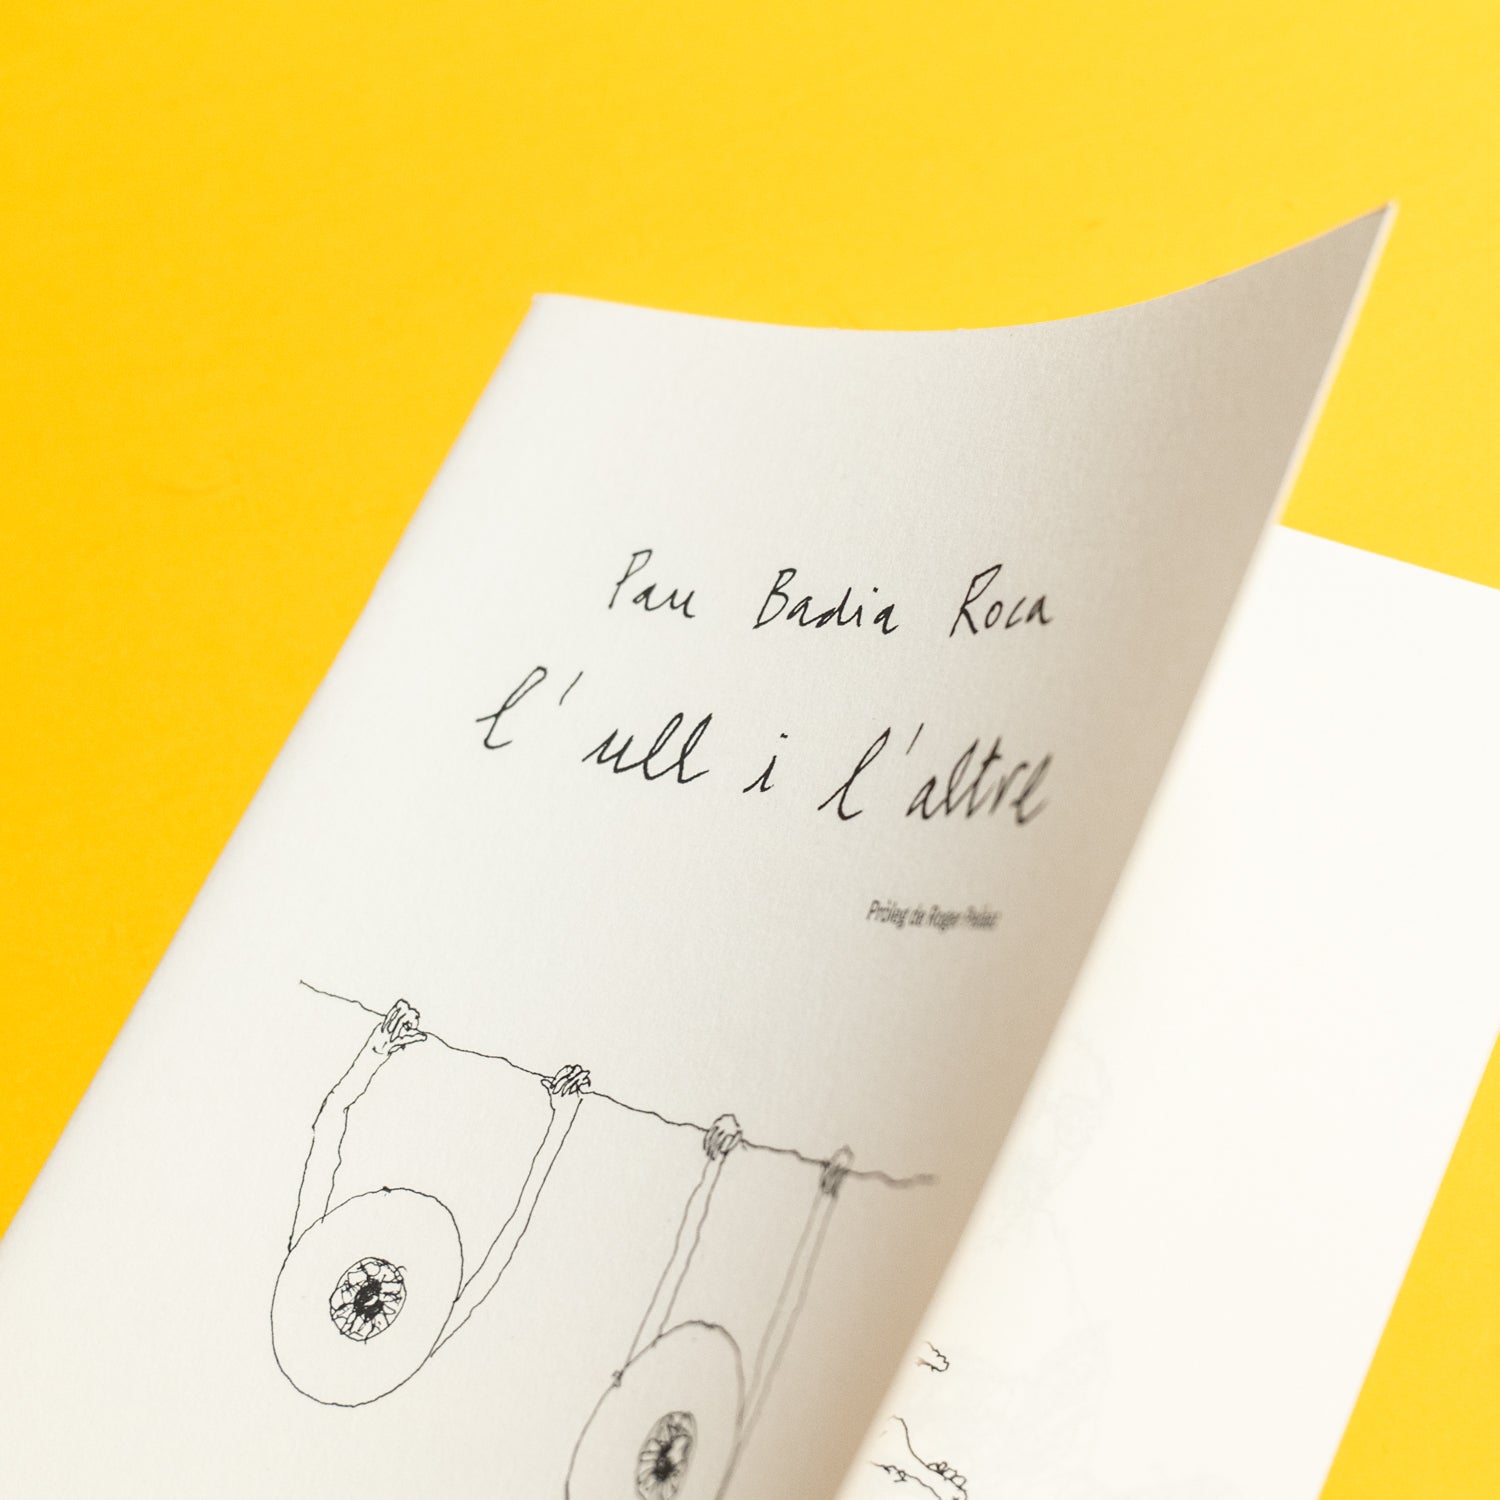 Pau Badia Roca
l'ull i l'altre
Pròleg de Roger